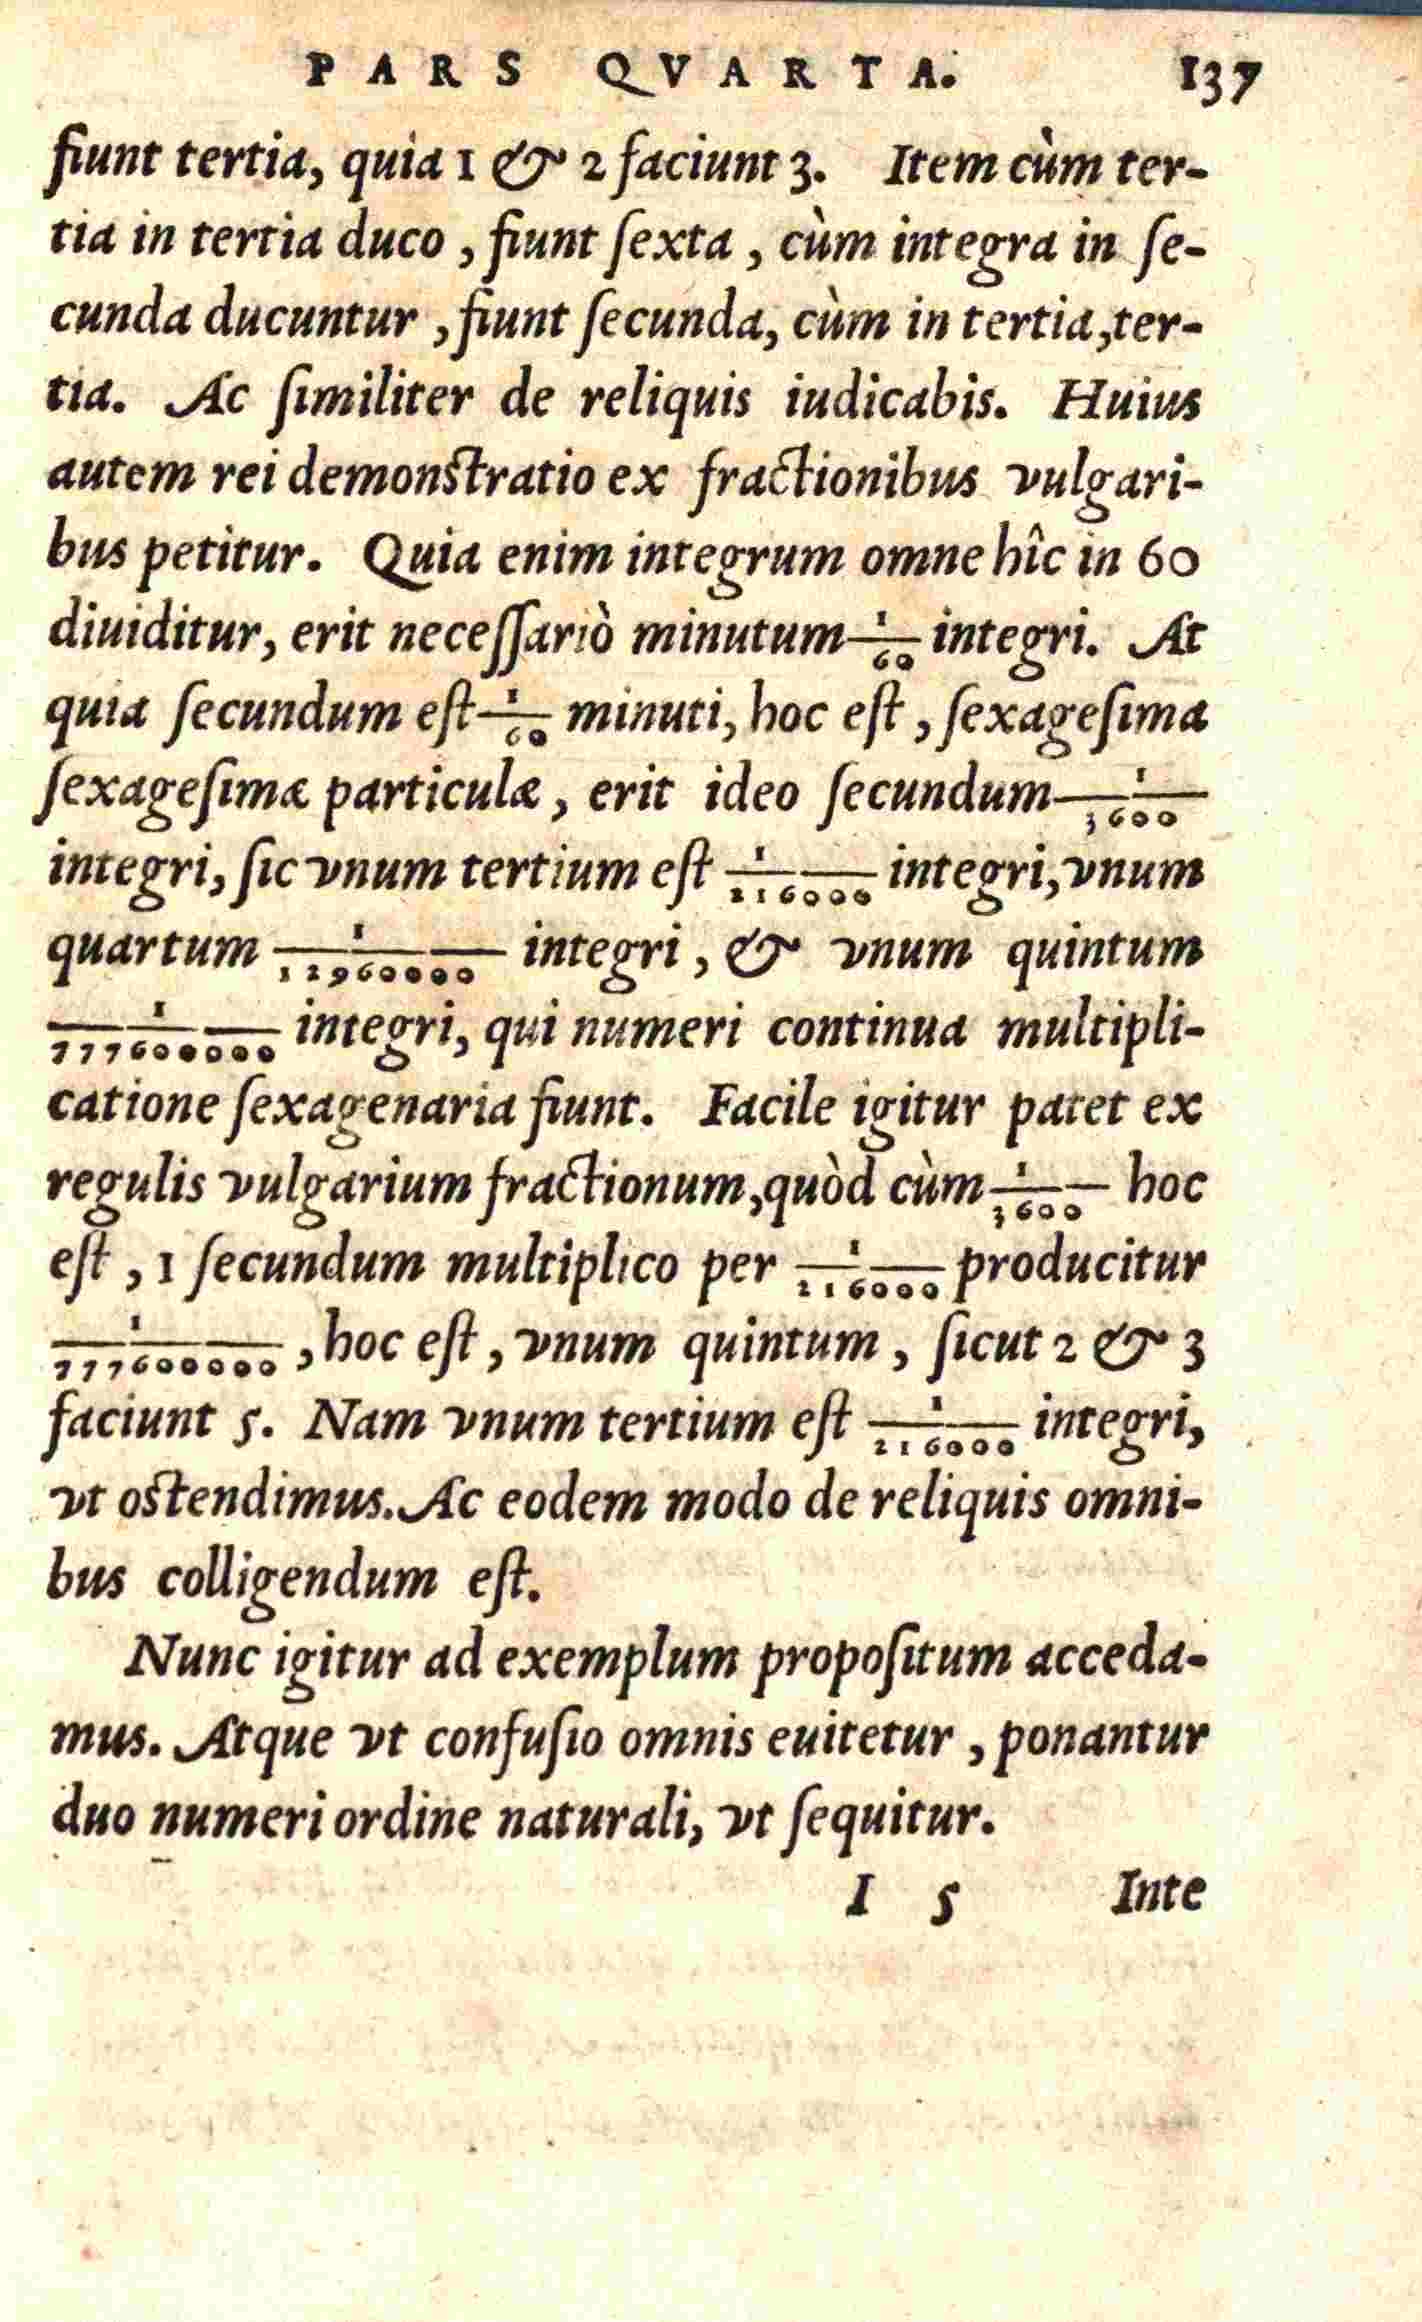 PARS QVARTA. 137
fiunt tertia, quia 1 & 2 faciunt 3. Item cùm ter-
tia in tertia duco, fiunt ſexta, cùm integra in ſe-
cunda ducuntur, fiunt ſecunda, cùm in tertia, ter-
tia. Ac ſimiliter de reliquis iudicabis. Huius
autem rei demonſtratio ex fractionibus vulgari-
bus petitur. Quia enim integrum omne hîc in 60
diuiditur, erit neceſſariò minutum 1/60 integri. At
quia ſecundum eſt 1/60 minuti, hoc eſt, ſexageſima
ſexageſimæ particulæ, erit ideo ſecundum 1/3600
integri, ſic vnum tertium eſt 1/216000 integri, vnum
quartum 1/12960000 integri, & vnum quintum
1/777600000 integri, qui numeri continua multipli-
catione ſexagenaria fiunt. Facile igitur patet ex
regulis vulgarium fractionum, quòd cùm 1/3600 hoc
eſt, 1 ſecundum multiplico per 1/216000 producitur
1/777600000, hoc eſt, vnum quintum, ſicut 2 & 3
faciunt 5. Nam vnum tertium eſt 1/216000 integri,
vt oſtendimus. Ac eodem modo de reliquis omni-
bus colligendum eſt.
Nunc igitur ad exemplum propoſitum acceda-
mus. Atque vt confuſio omnis euitetur, ponantur
duo numeri ordine naturali, vt ſequitur.
I 5 Inte